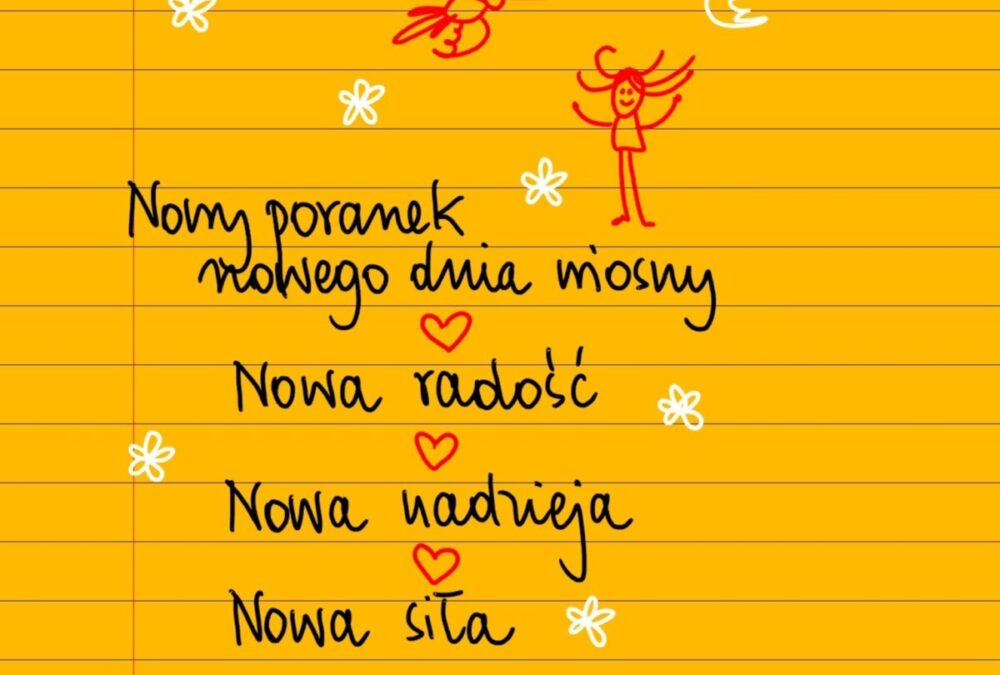 Nowy poranek
nowego dnia wiosny
Nowa radość
Nowa nadzieja
Nowa siła